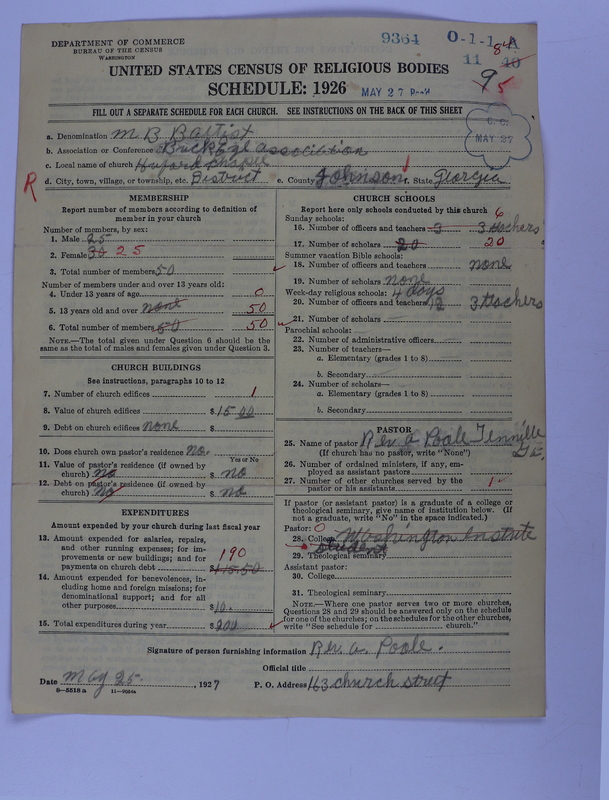 DEPARTMENT OF COMMERCE
BUREAU OF THE CENSUS
WASHINGTON
9364 O-1-1 A
11
9 5
UNITED STATES CENSUS OF RELIGIOUS BODIES
SCHEDULE: 1926 MAY 27
FILL OUT A SEPARATE SCHEDULE FOR EACH CHURCH. SEE INSTRUCTIONS ON THE BACK OF THIS SHEET
MAY 27
a. Denomination M B Baptist
b. Association or Conference association
c. Local name of church
R
d. City, town, village, or township, etc. District e. County Johnson f. State Georgia
MEMBERSHIP
Report number of members according to definition of member in your church
Number of members, by sex:
1. Male 25
2. Female 25
3. Total number of members 50
Number of members under and over 13 years old:
4. Under 13 years of age 0
5. 13 years old and over none 50
6. Total number of members 50 50
NOTE.—The total given under Question 6 should be the
same as the total of males and females given under Question 3.
CHURCH BUILDINGS
See instructions, paragraphs 10 to 12
7. Number of church edifices 1
8. Value of church edifices $1500
9. Debt on church edifices none $
10. Does church own pastor's residence no.
Yes or No
11. Value of pastor's residence (if owned by
church) no $ no
12. Debt on pastor's residence (if owned by
church) no $ no
EXPENDITURES
Amount expended by your church during last fiscal year
13. Amount expended for salaries, repairs,
and other running expenses; for im-
provements or new buildings; and for 190
payments on church debt $
14. Amount expended for benevolences, in-
cluding home and foreign missions; for
denominational support; and for all
other purposes $10.
15. Total expenditures during year $200
CHURCH SCHOOLS
Report here only schools conducted by this church
Sunday schools:
16. Number of officers and teachers 3 3 teachers
17. Number of scholars 20 20
Summer vacation Bible schools:
18. Number of officers and teachers none
19. Number of scholars none
Week-day religious schools: 4 days
20. Number of officers and teachers 12 3 teachers
21. Number of scholars
Parochial schools:
22. Number of administrative officers
23. Number of teachers—
a. Elementary (grades 1 to 8)
b. Secondary
24. Number of scholars—
a. Elementary (grades 1 to 8)
b. Secondary
PASTOR
25. Name of pastor Rev a Poale Tennille
(If church has no pastor, write "None")
26. Number of ordained ministers, if any, em-
ployed as assistant pastors
27. Number of other churches served by the
pastor or his assistants 1
If pastor (or assistant pastor) is a graduate of a college or
theological seminary, give name of institution below. (If
not a graduate, write "No" in the space indicated.)
Pastor: 0
28. College Washington Institute
student
29. Theological seminary
Assistant pastor:
30. College
31. Theological seminary
NOTE.—Where one pastor serves two or more churches,
Questions 28 and 29 should be answered only on the schedule
for one of the churches; on the schedules for the other churches,
write "See schedule for church."
Signature of person furnishing information Rev. a. Poale.
Official title
Date May 25., 1927 P. O. Address 163 church street
8—5518 a 11—9554a